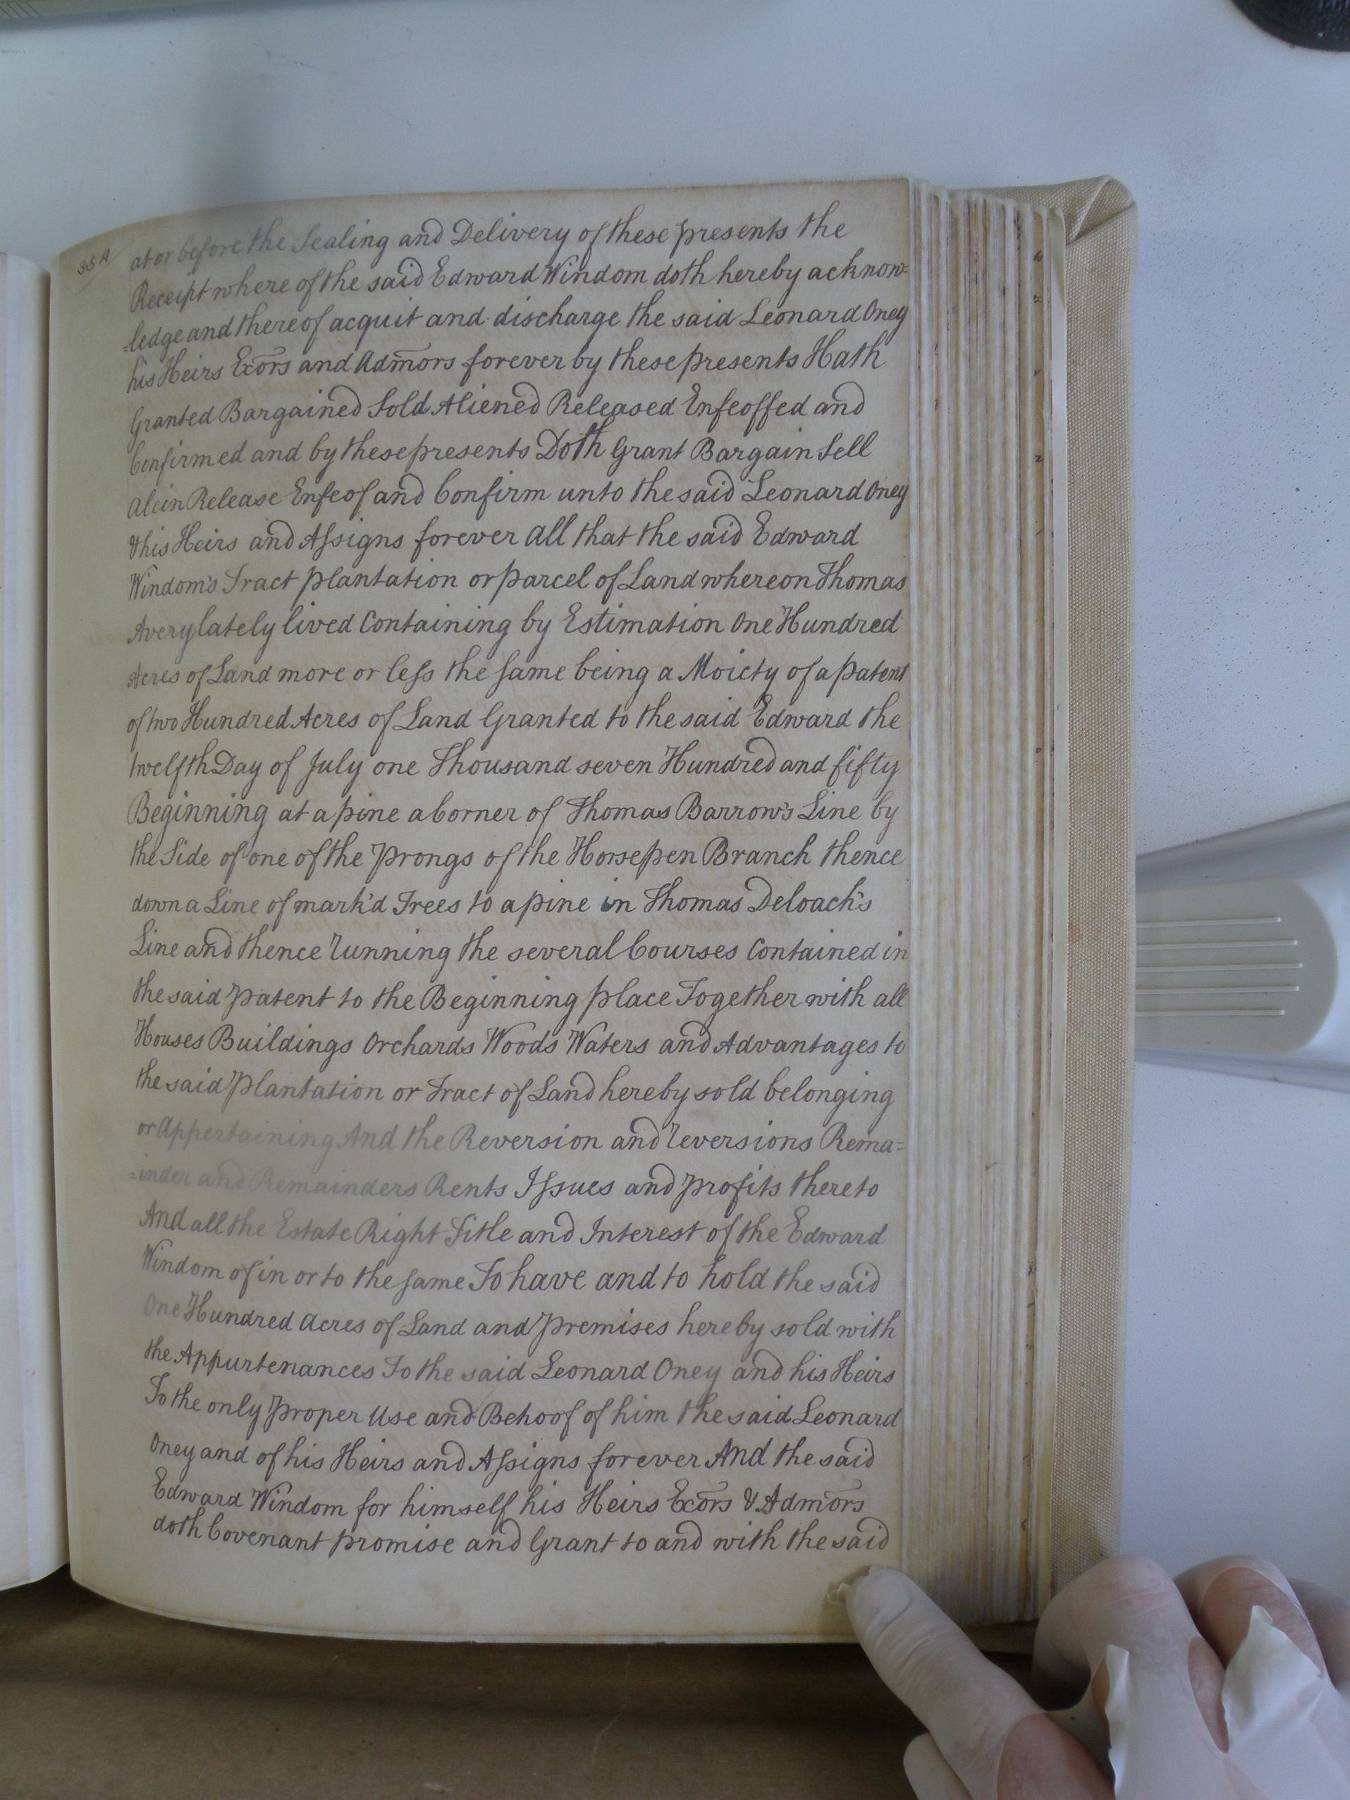 35A
at or before the Sealing and Delivery of these presents the
Receipt where of the said Edward Windom doth hereby acknow=
=ledge and thereof acquit and discharge the said Leonard Oney
his Heirs Exors and Admors forever by these presents Hath
Granted Bargained Sold Aliened Released Enfeoffed and
Confirmed and by these presents Doth Grant Bargain Sell
Alein Release Enfeof and Confirm unto the said Leonard Oney
& his Heirs and Assigns forever All that the said Edward
Windom's Tract plantation or parcel of Land whereon Thomas
Avery lately lived Containing by Estimation One Hundred
Acres of Land more or less the same being a Moiety of a patent
of two Hundred Acres of Land Granted to the said Edward the
twelfth Day of July one Thousand seven Hundred and fifty
Beginning at a pine a Corner of Thomas Barrow's Line by
the Side of one of the Prongs of the Horsepen Branch thence
down a Line of mark'd Trees to a pine in Thomas Deloach's
Line and thence running the several Courses Contained in
the said Patent to the Beginning place Together with all
Houses Buildings Orchards Woods Waters and Advantages to
the said Plantation or Tract of Land hereby sold belonging
or Appertaining And the Reversion and reversions Rema=
=inder and Remainders Rents Issues and Profits thereto
And all the Estate Right Title and Interest of the Edward
Windom of in or to the same To have and to hold the said
One Hundred Acres of Land and Premises hereby sold with
the Appurtenances To the said Leonard Oney and his Heirs
To the only Proper Use and Behoof of him the said Leonard
Oney and of his Heirs and Assigns forever And the said
Edward Windom for himself his Heirs Exors & Admors
doth Covenant promise and Grant to and with the said